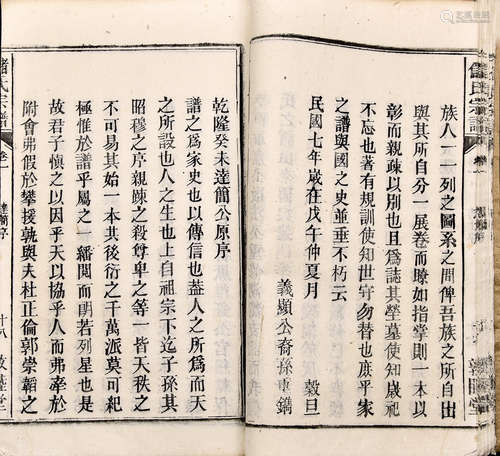 儲氏宗譜
卷一
族人一一列之圖系之間俾吾族之所自出
與其所自分一展卷而瞭如指掌則一本以
彰而親疎以別也且為誌其塋墓使知歲祀
不忘也著有規訓使知世守勿替也庶乎家
之譜與國之史並垂不朽云
民國七年歲在戊午仲夏月
穀旦
義顯公裔孫重鐫
乾隆癸未達簡公原序
譜之為家史也以傳信也蓋人之所為而天
之所設也人之生也上自祖宗下迄子孫其
昭穆之序親踈之殺尊卑之等一皆天秩之
不可易其始一本其後衍之千萬派莫可紀
極惟於譜乎屬之一繙閱而朗若列星也是
故君子慎之以因乎天以協乎人而弗牽於
附會弗假於攀援孰與夫杜正倫郭崇韜之
卷一
達簡序
十八